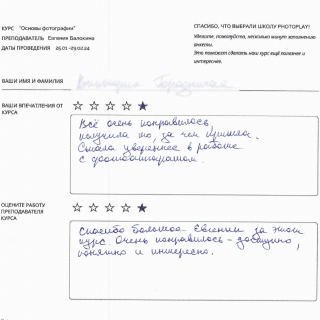 КУРС "Основы фотографии"
ПРЕПОДАВАТЕЛЬ Евгения Балохина
ДАТЫ ПРОВЕДЕНИЯ 25.01 -29.02.24
СПАСИБО, ЧТО ВЫБРАЛИ ШКОЛУ PHOTOPLAY!
Уделите, пожалуйста, несколько минут заполнению
анкеты.
Это поможет сделать наш курс ещё полезнее и
интереснее.
ВАШИ ИМЯ И ФАМИЛИЯ
ВАШИ ВПЕЧАТЛЕНИЯ ОТ
КУРСА
Всё очень понравилось,
получила то, за чем пришла.
Стала увереннее в работе
с фотоаппаратом.
ОЦЕНИТЕ РАБОТУ
ПРЕПОДАВАТЕЛЯ
КУРСА
Спасибо большое Евгении за этот
курс. Очень понравилось - доступно,
понятно и интересно.